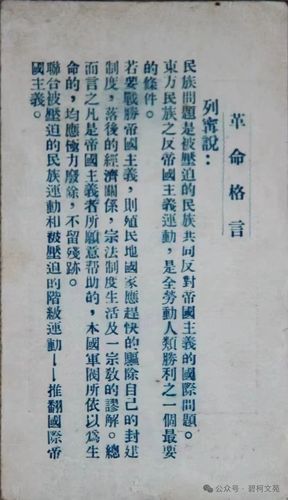 革命格言
列甯說：
民族問題是被壓迫的民族共同反對帝國主義的國際問題。
東方民族之反帝國主義運動，是全勞動人類勝利之一個最要
的條件。
若要戰勝帝國主義，則殖民地國家應趕快的驅除自己的封建
制度，落後的經濟關係，宗法制度生活及一宗敎的謬解。總
而言之凡是帝國主義者所願意帮助的，本國軍閥所依以爲生
命的，均應極力廢除，不留殘跡。
聯合被壓迫的民族運動和被壓迫的階級運動——推翻國際帝
國主義。
公众号·碧柯文苑